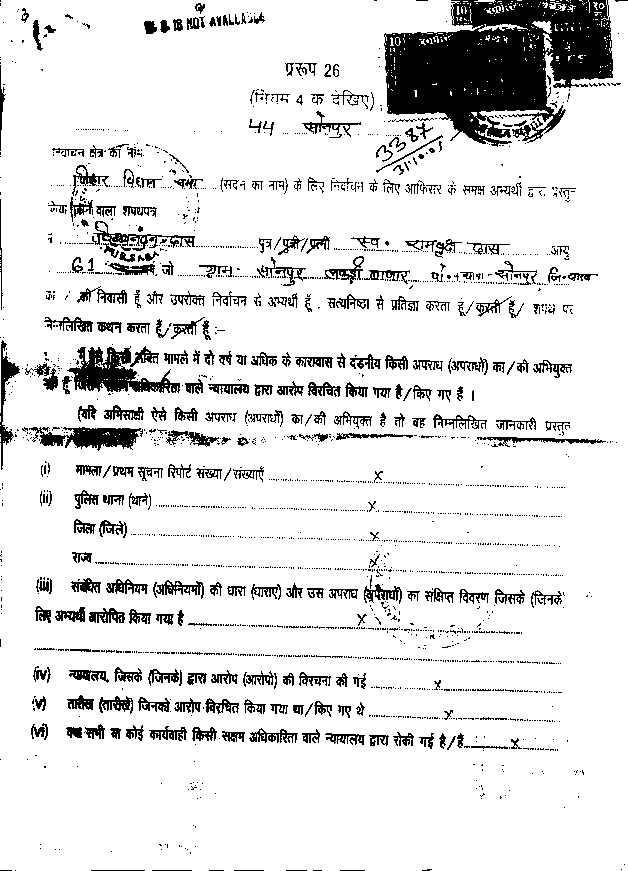 IS NOT AVAILABLE
प्ररूप 26
(नियम 4 क देखिए)
44 सोनपुर
3387
निर्वाचन क्षेत्र का नाम
बिहार विधान सभा (सदन का नाम) के लिए निर्वाचन के लिए आफिसर के समक्ष अभ्यर्थी द्वारा प्रस्तुत
किया जाने वाला शपथपत्र
दास पुत्र/पुत्री/पत्नी स्व. रामवृक्ष दास आयु
61 वर्ष, जो ग्राम- सोनपुर लकड़ी बाजार पो.+थाना-सोनपुर जि-
का / की निवासी हूँ और उपरोक्त निर्वाचन से अभ्यर्थी हूँ , सत्यनिष्ठा से प्रतिज्ञा करता हूँ/करती हूँ/ शपथ पर
निम्नलिखित कथन करता हूँ/करती हूँ :-
मामले में दो वर्ष या अधिक के कारावास से दंडनीय किसी अपराध (अपराधों) का/की अभियुक्त
अधिकारिता वाले न्यायालय द्वारा आरोप विरचित किया गया है/किए गए हैं ।
(यदि अभिसाक्षी ऐसे किसी अपराध (अपराधों) का/की अभियुक्त है तो वह निम्नलिखित जानकारी प्रस्तुत
(i) मामला/प्रथम सूचना रिपोर्ट संख्या/संख्याएँ x
(ii) पुलिस थाना (थाने) x
जिला (जिले) x
राज्य x
(iii) संबंधित अधिनियम (अधिनियमों) की धारा (धाराएं) और उस अपराध (अपराधों) का संक्षिप्त विवरण जिसके (जिनके)
लिए अभ्यर्थी आरोपित किया गया है x
(iv) न्यायालय, जिसके (जिनके) द्वारा आरोप (आरोपो) की विरचना की गई x
(v) तारीख (तारीखें) जिनको आरोप विरचित किया गया था/किए गए थे x
(vi) क्या सभी या कोई कार्यवाही किसी सक्षम अधिकारिता वाले न्यायालय द्वारा रोकी गई है/हैं x